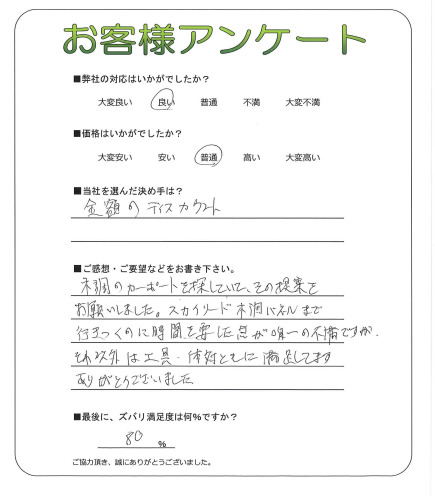 お客様アンケート
■弊社の対応はいかがでしたか？
大変良い 良い 普通 不満 大変不満
■価格はいかがでしたか？
大変安い 安い 普通 高い 大変高い
■当社を選んだ決め手は？
金額のディスカウント
■ご感想・ご要望などをお書き下さい。
木調のカーポートを探していて、その提案を
お願いしました。スカイリード木調パネルまで
行きつくのに時間を要した点が唯一の不満ですが、
それ以外は工具・体対ともに満足してます
ありがとうございました
■最後に、ズバリ満足度は何％ですか？
80 %
ご協力頂き、誠にありがとうございました。